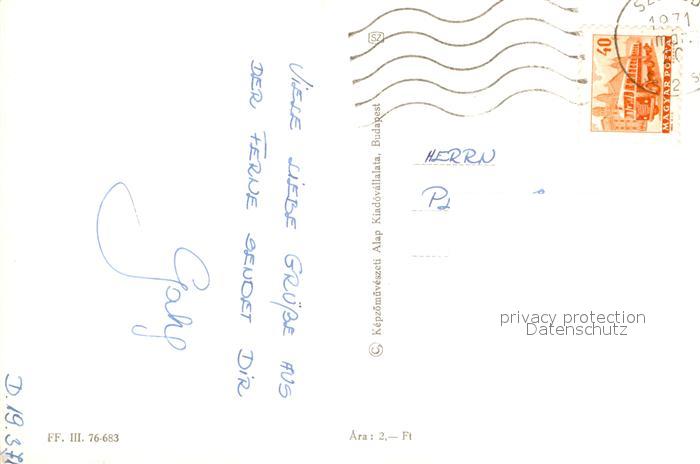 VIELE LIEBE GRÜßE AUS
DER FERNE SENDET DIR
D. 19.3.71
FF. III. 76-683
© Képzőművészeti Alap Kiadóvállalata, Budapest
SZ
Ára: 2,— Ft
HERRN
1971
40
MAGYAR POSTA
privacy protection
Datenschutz